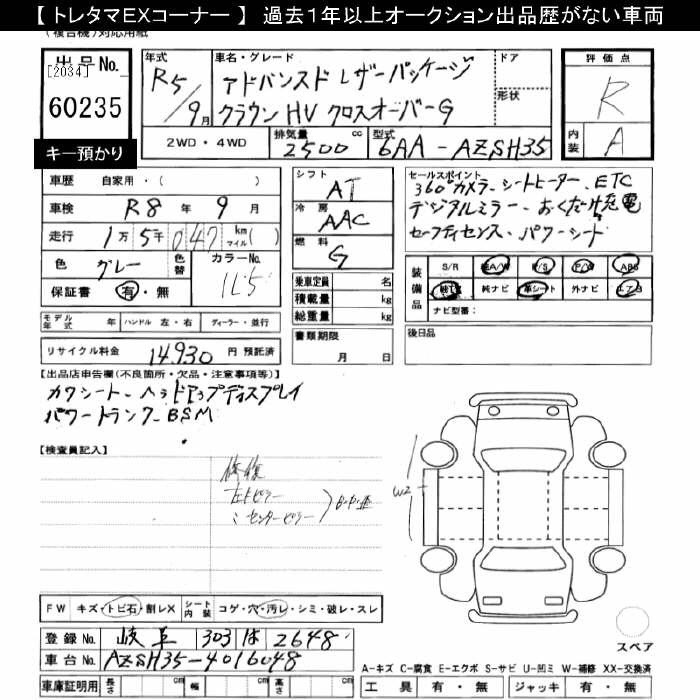 【トレタマEXコーナー】 過去1年以上オークション出品歴がない車両
(複合機)対応用紙
出品No.
[2034]
60235
キー預かり
年式 R5/9月
車名・グレード
アドバンスド レザーパッケージ
クラウン HV クロスオーバーG
ドア
形状
評価点 R
内装 A
2WD・4WD
排気量 2500 cc
型式 6AA-AZSH35
車歴 自家用・( )
車検 R8 年 9 月
走行 1万5千047 km マイル( )
色 グレー
色替
カラーNo. 1L5
保証書 有・無
シフト AT
冷房 AAC
燃料 G
乗車定員 名
積載量 kg
総重量 kg
セールスポイント
360°カメラ、シートヒーター、ETC
デジタルミラー、おくだけ充電
セーフティセンス、パワーシート
装備品
S/R 純A/W P/S P/W ABS
純TV 純ナビ 革シート 外ナビ エアB
ナビ型番:
モデル年式 年 ハンドル 左・右 ディーラー・並行
書類期限 月 日
後日品
リサイクル料金 14,930 円 預託済
【出品店申告欄(不良箇所・欠品・注意事項等)】
カワシート、ヘッドアップディスプレイ
パワートランク、BSM
【検査員記入】
修復
左トピラー
〃センターピラー
W2
FW キズ・トビ石・割レX
シート内装 コゲ・穴・汚レ・シミ・破レ・スレ
登録No. 岐阜 303 は 2648
車台No. AZSH35-4016048
車庫証明用 長さ cm 幅 cm 高さ cm
スペア
A-キズ C-腐食 E-エクボ S-サビ U-凹ミ W-補修 XX-交換済
工具 有・無 ジャッキ 有・無